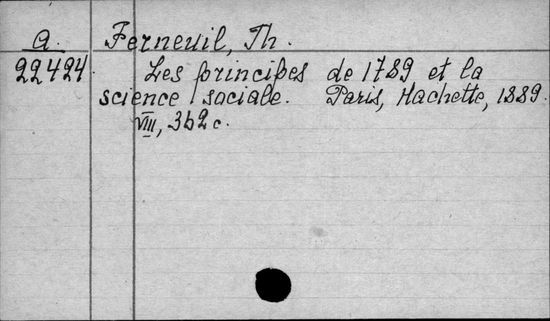 a. Ferneuil, Th.
22424 Les principes de 1789 et la
science sociale. Paris, Hachette, 1889.
VIII, 362 c.